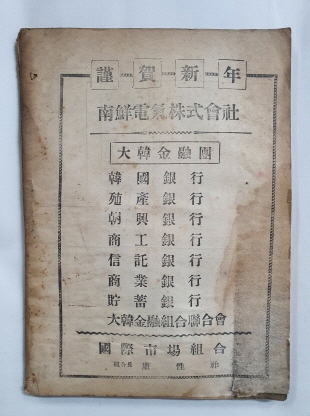 謹賀新年
南鮮電気株式會社
大韓金融團
韓國銀行
殖產銀行
朝興銀行
商工銀行
信託銀行
商業銀行
貯蓄銀行
大韓金融組合聯合會
國際市場組合